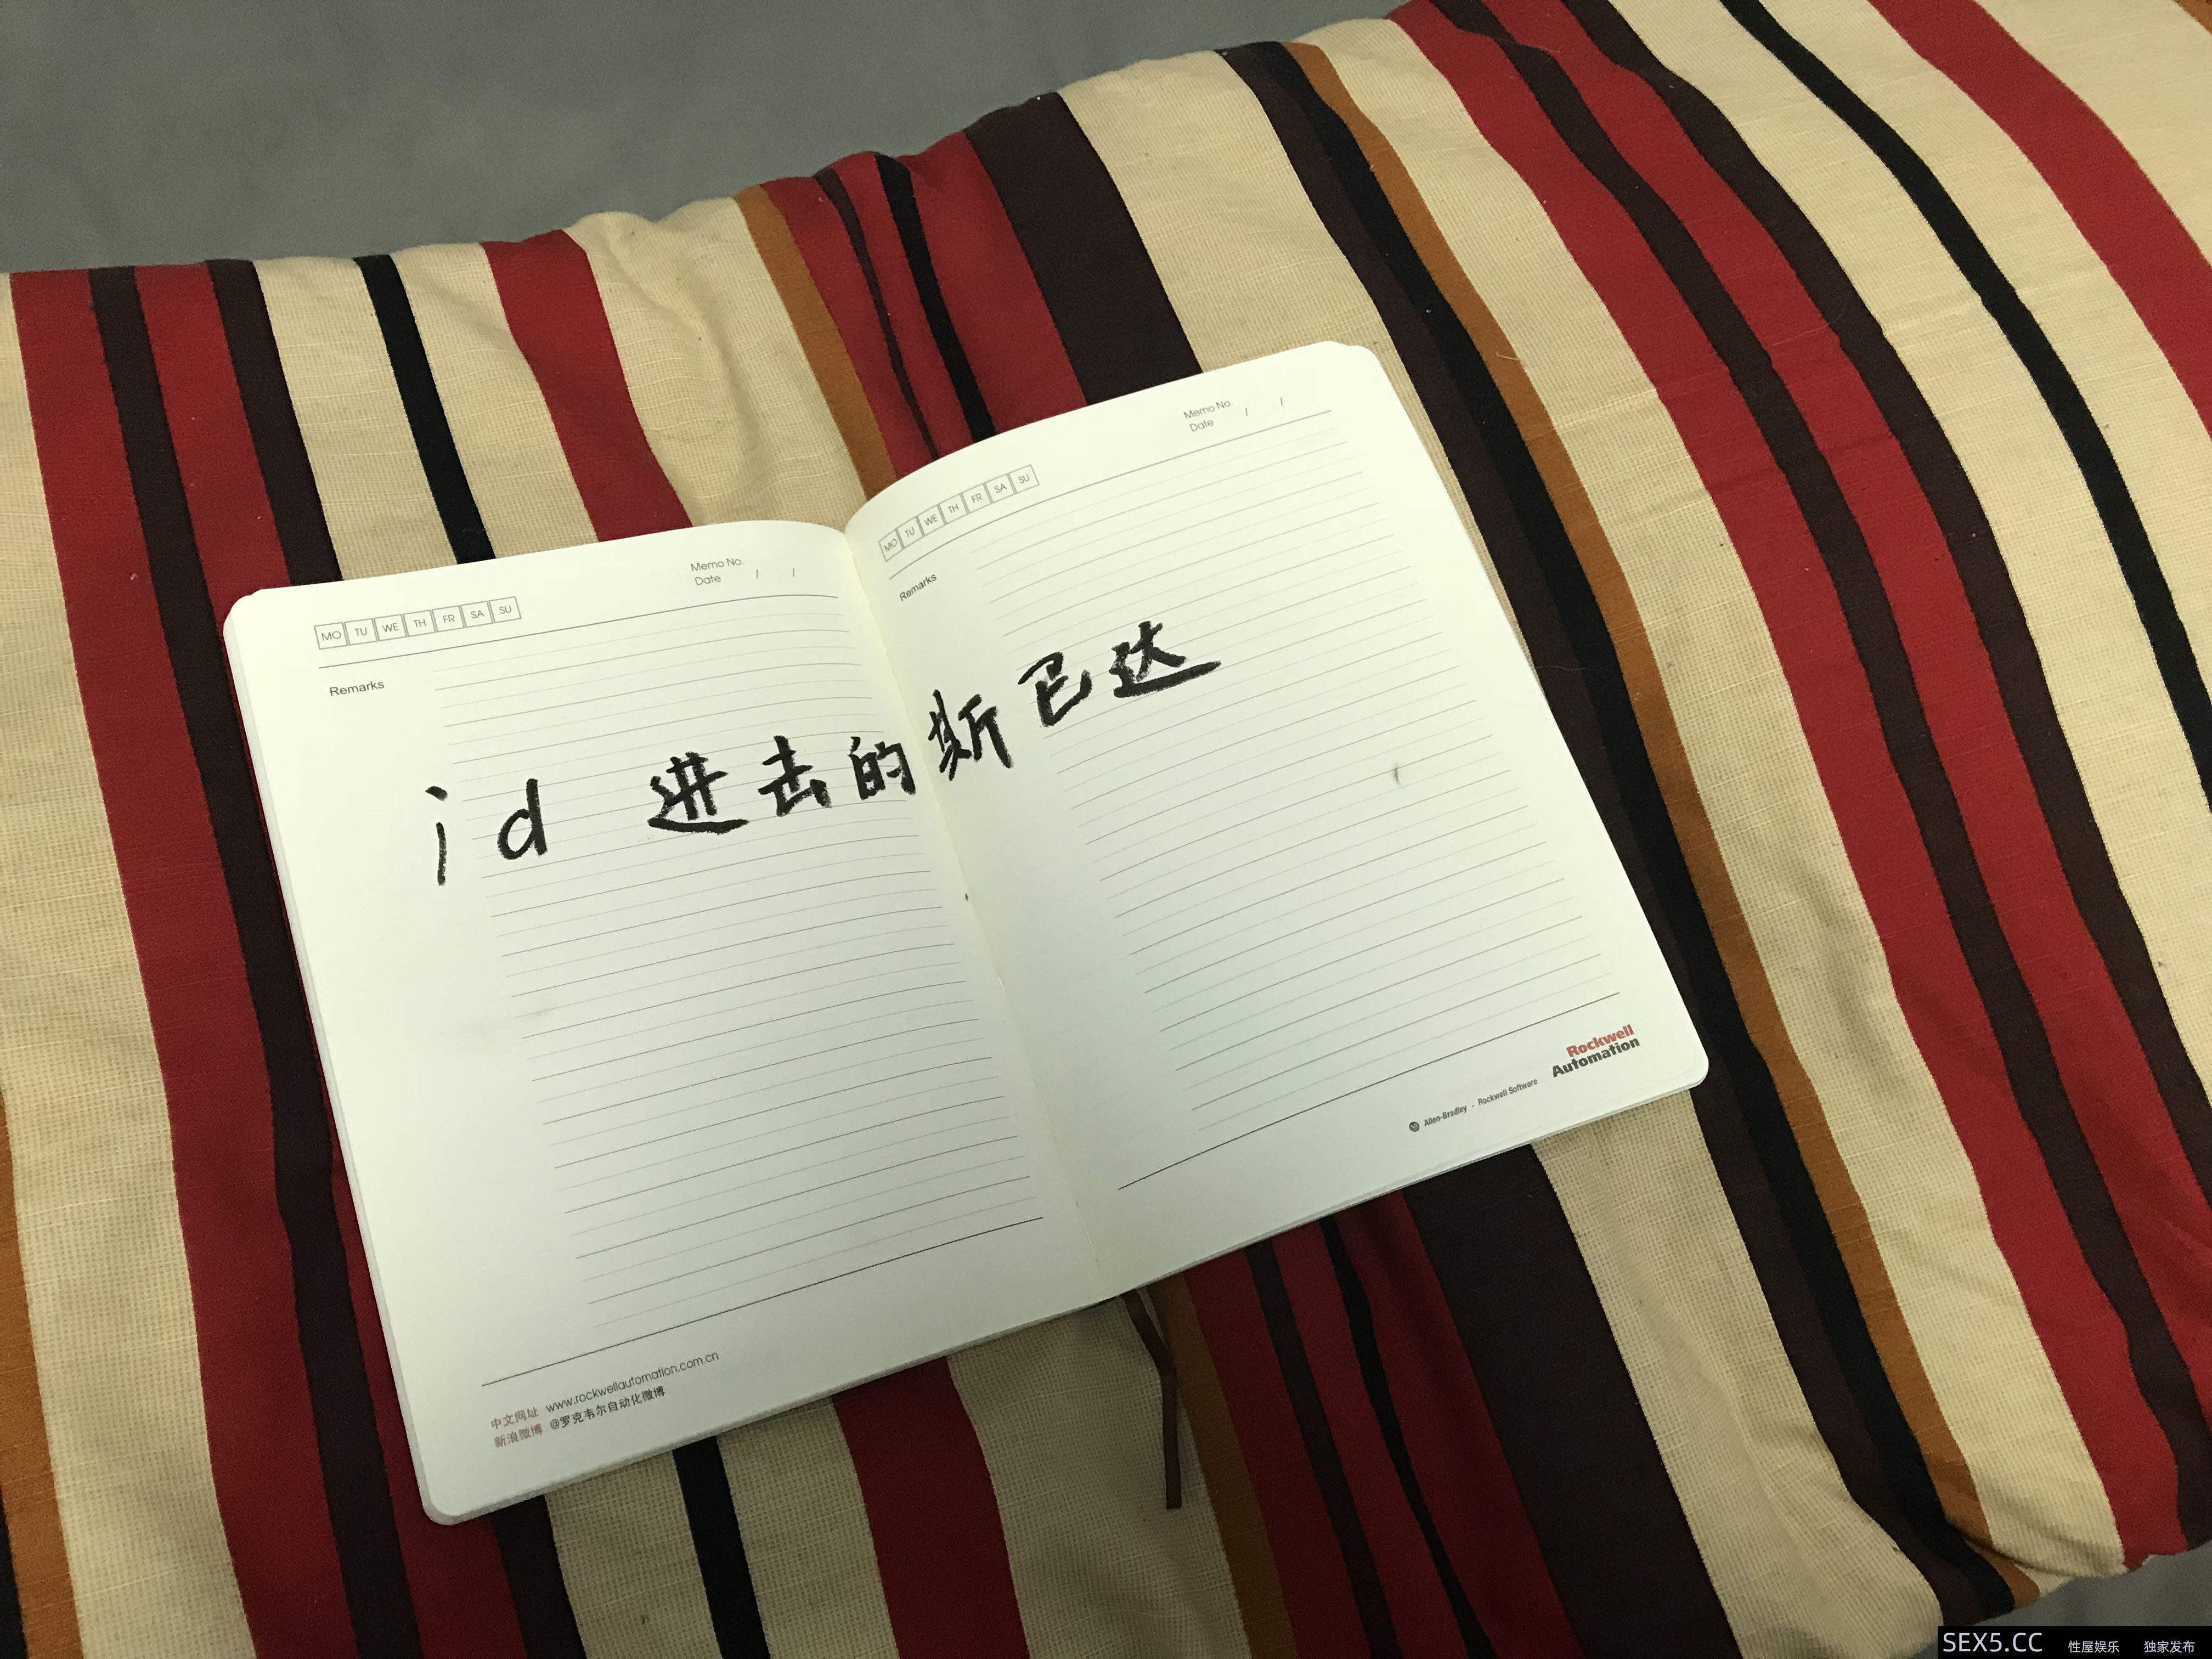 MO TU WE TH FR SA SU
Memo No.
Date / /
Remarks
MO TU WE TH FR SA SU
Memo No.
Date / /
Remarks
id 进击的斯巴达
中文网址 www.rockwellautomation.com.cn
新浪微博 @罗克韦尔自动化微博
Allen-Bradley · Rockwell Software
Rockwell
Automation
SEX5.CC 性屋娱乐 独家发布